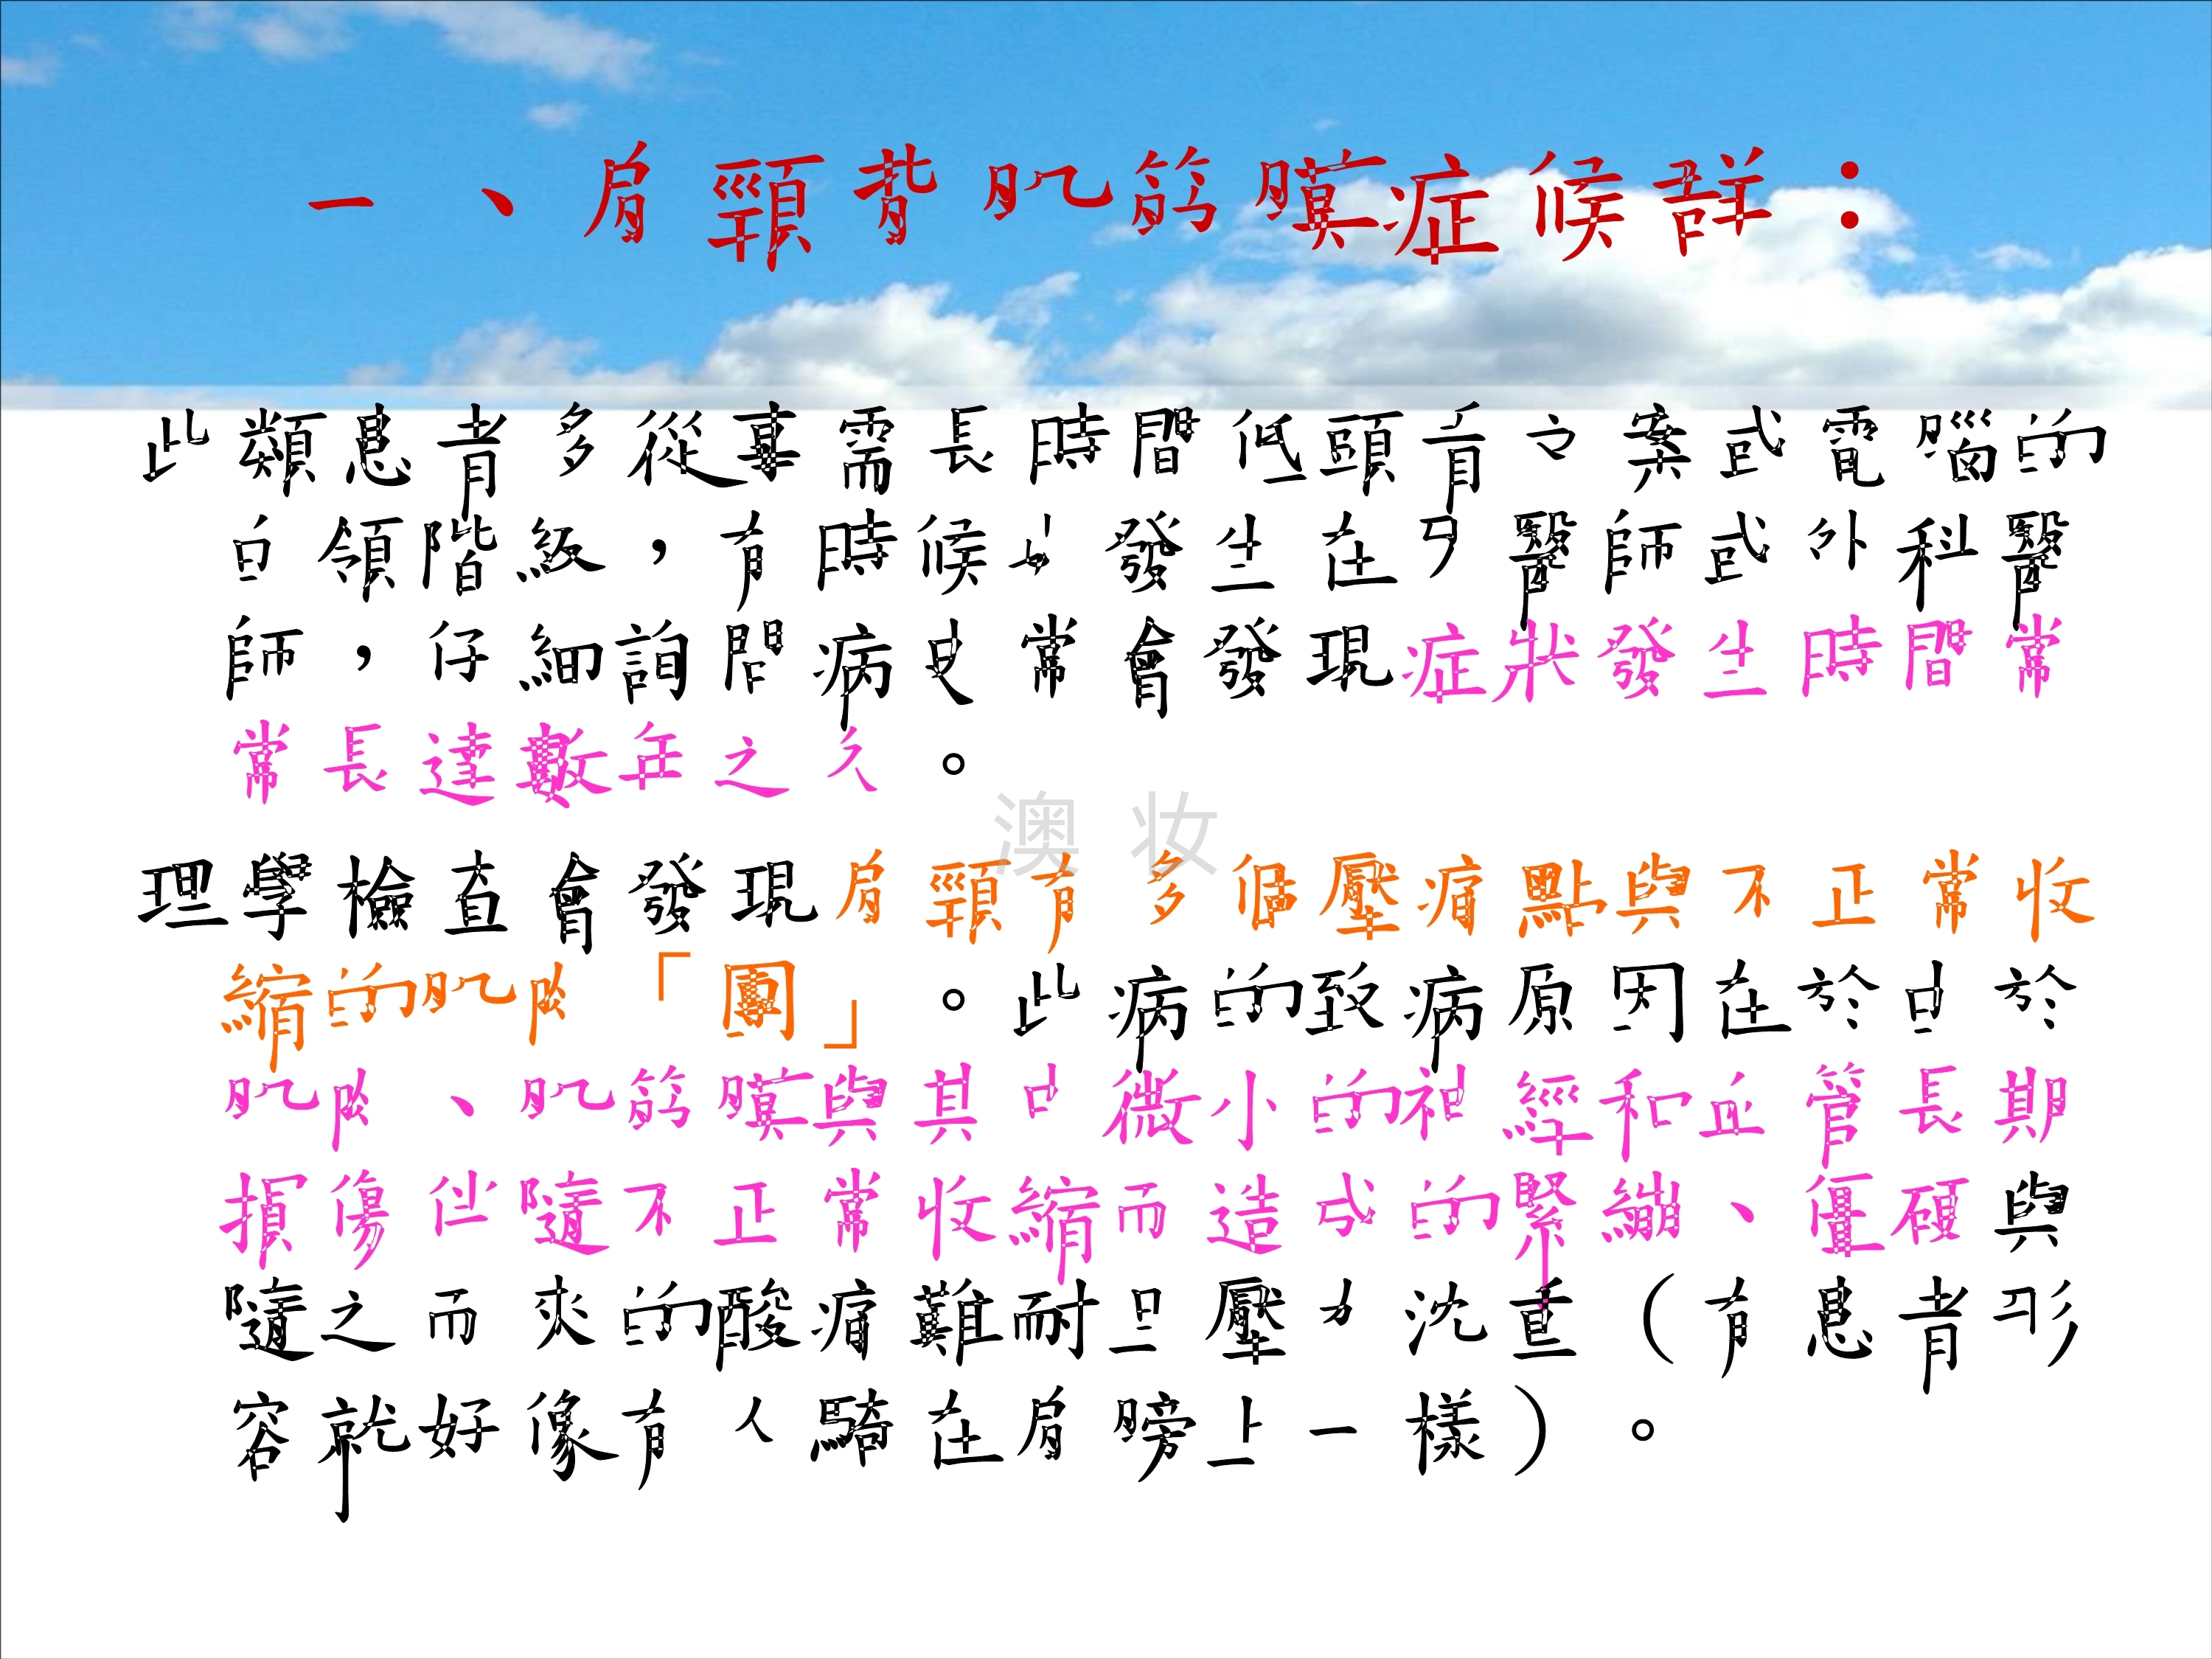 一、肩頸背肌筋膜症候群：
此類患者多從事需長時間低頭看文案或電腦的
白領階級，有時候也發生在牙醫師或外科醫
師，仔細詢問病史常會發現症狀發生時間常
常長達數年之久。
澳妝
理學檢查會發現肩頸有多個壓痛點與不正常收
縮的肌肉「團」。此病的致病原因在於由於
肌肉、肌筋膜與其中微小的神經和血管長期
損傷伴隨不正常收縮而造成的緊繃、僵硬與
隨之而來的酸痛難耐且壓力沈重（有患者形
容就好像有人騎在肩膀上一樣）。